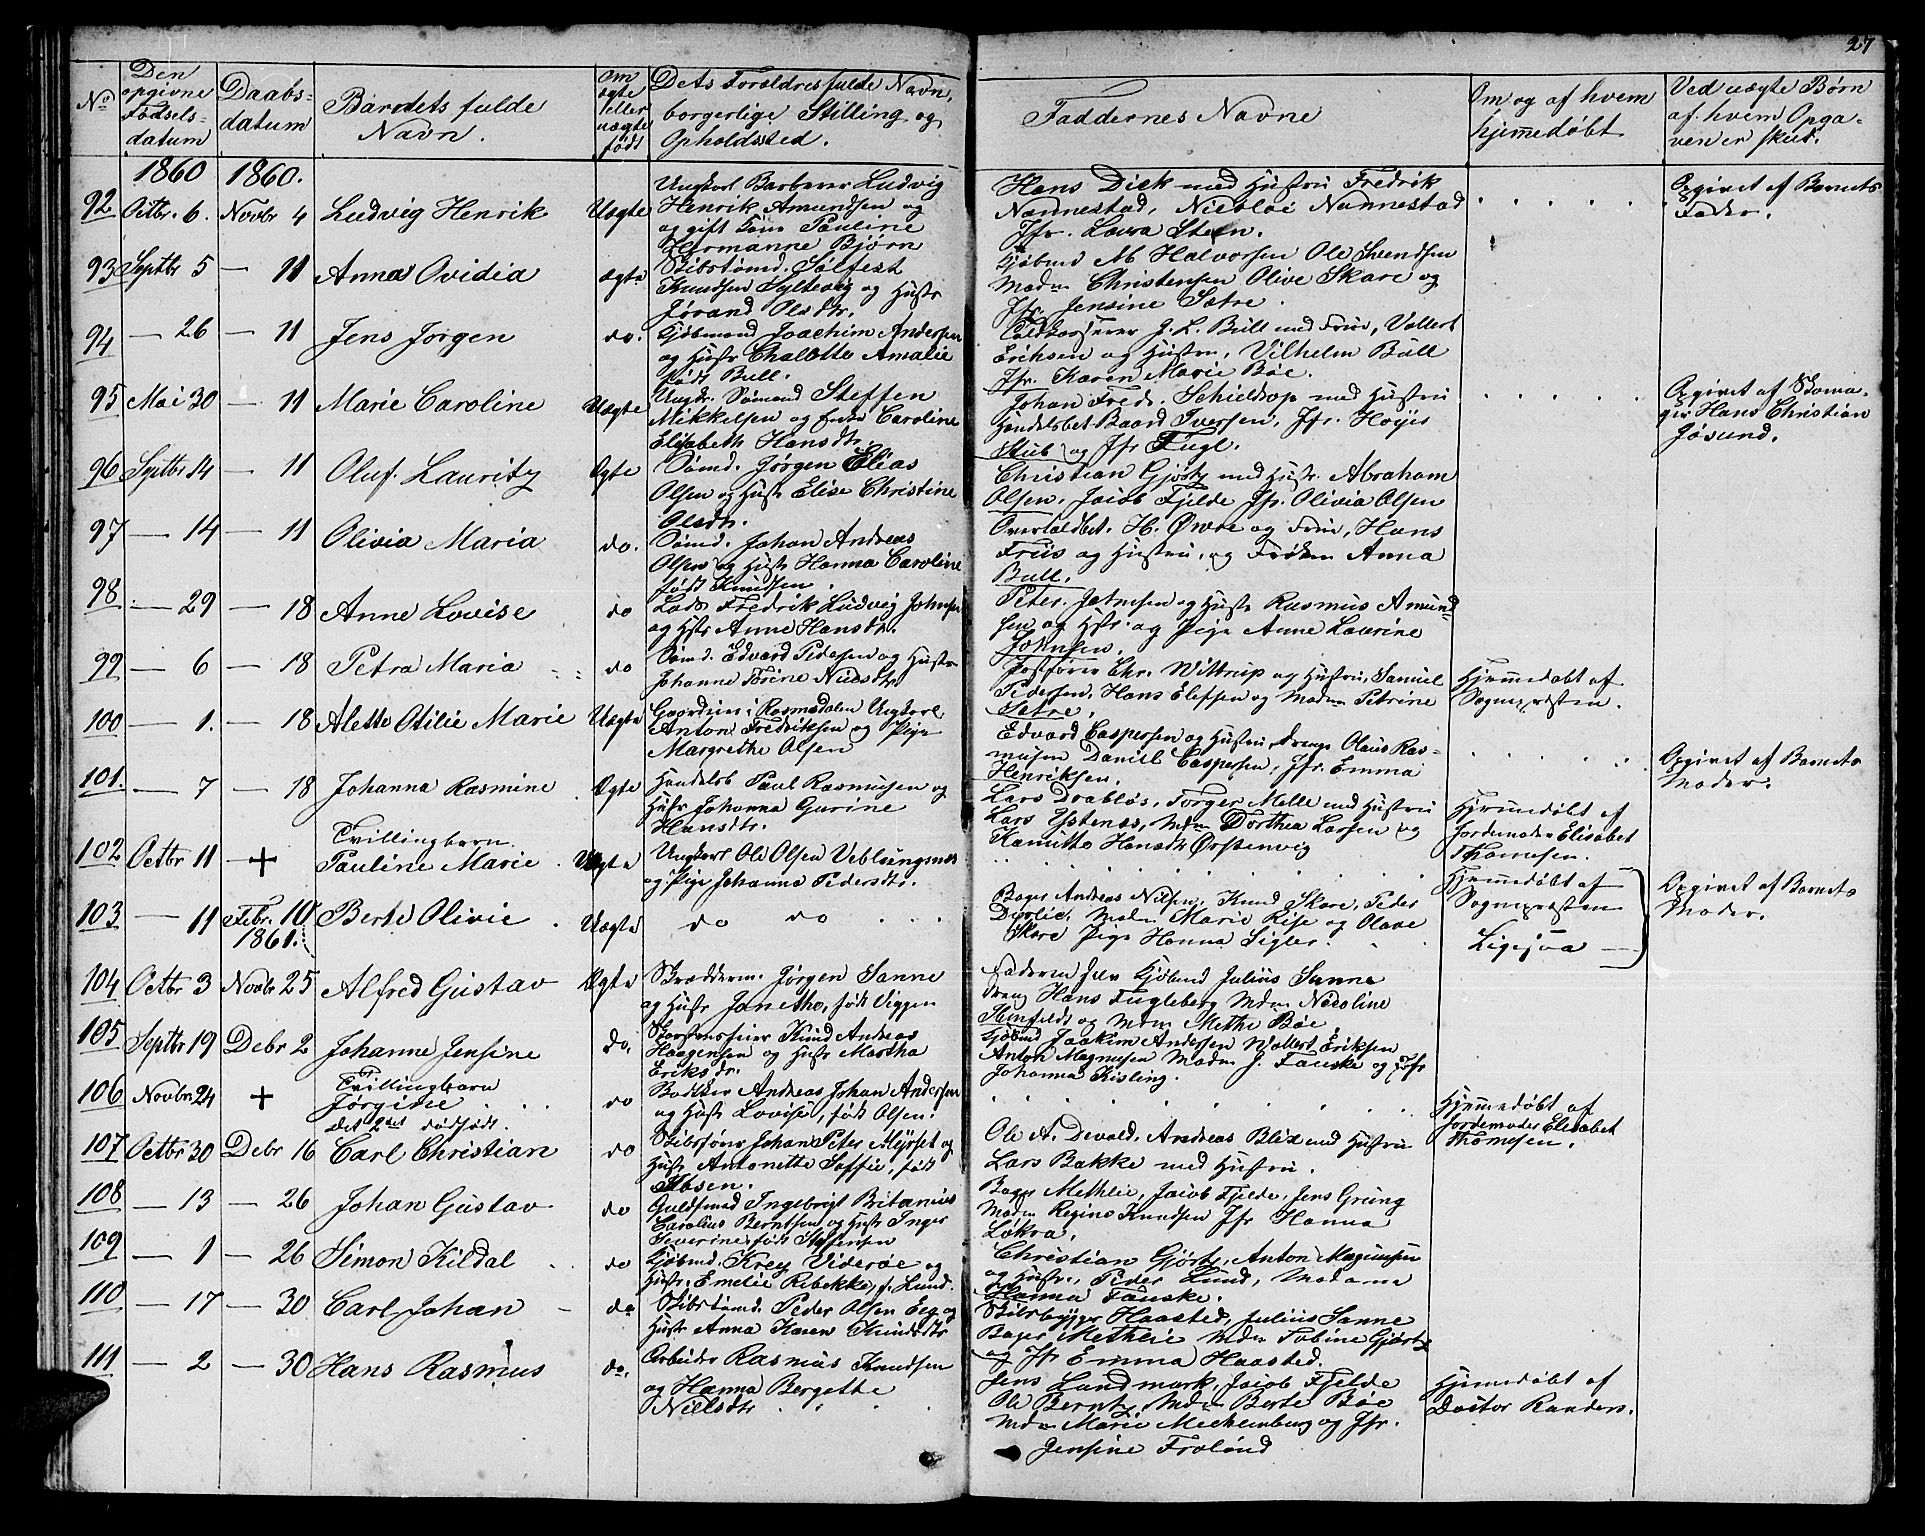 27
No
Den opgivne Fødselsdatum
Daabsdatum
Barnets fulde Navn.
Om ægte eller uægte født
Dets Forældres fulde Navn, borgerlige Stilling og Opholdssted.
Faddernes Navne
Om og af hvem hjemmedøbt
Ved uægte Børn af hvem Opgaven er skeet.
1860 1860.
92 Octbr. 6. Novbr 4 Ludvig Henrik Uægte
Ungkarl Barberer Ludvig
Henrik Amundsen og
og gift Pauline
Hermanne Bjørn
Hans Dick med Hustru Fredrik
Nannestad, Nicolai Nannestad
Jfr. Laura Steen.
Opgivet af Barnets
Fader.
93 Septbr 5 — 11 Anna Ovidia ægte
Skibstømd. Sølfest
Knudsen Syltevig og Hustr
Jørand Olsdtr.
Kjøbmd Ab Halvorsen Ole Svendsen
Madm Christensen Olive Skare og
Jfr. Jensine Sætre.
94 — 26 — 11 Jens Jørgen do.
Kjøbmand Joachim Andersen
og Hustr Chalotte Amalie
født Bull.
Toldkasserer J. L. Bull med Frue, Vollert
Eriksen og Hustru, Vilhelm Bull
Jfr. Karen Marie Bøe.
95 Mai 30 — 11 Marie Caroline Uægte
Ungk. Sømand Steffen
Mikkelsen og Enke Caroline
Elisabeth Hansdtr.
Johan Fredr. Schieldrop med Hustru
Handelsbet. Baard Iversen, Jfr. Høyer
Stub og Jfr Fugl.
Opgivet af Skoma-
ger Hans Christian
Jøsund.
96 Septbr 14 — 11 Oluf Lauritz Ægte
Sømd. Jørgen Elias
Olsen og Hustr Elise Christine
Olsdtr.
Christian Gjørtz med Hustr. Abraham
Olsen, Jacob Fjelde Jfr. Olivia Olsen
97 — 14 — 11 Olivia Maria do.
Sømd. Johan Andreas
Olsen og Hustr Hanna Caroline
født Knudsen.
Overtoldbet. H. Øwre og Frue, Hans
Friis og Hustru, og Frøken Anna
Bull.
98 — 29 — 18 Anne Lovise do
Lods Fredrik Ludvig Johnsen
og Hstr Anne Hansdtr.
Peter Johnsen og Hustr Rasmus Amund-
sen og Hstr. og Pige Anne Laurine
Johnsen.
99 — 6 — 18 Petra Maria do
Sømd. Edvard Pedersen og Hustru
Johanne Nielsdtr.
Postfører Chr. Wittrup og Hustru, Samuel
Pedersen, Hans Elefsen og Madm Petrine
Sætre.
Hjemmedøbt af
Sognepræsten.
100 — 1. — 18 Alette Otilie Marie Uægte
Gaardmer i Romsdalen Ungkarl
Anton Fredriksen og Pige
Margrethe Olsen
Edvard Caspersen og Hustru, drenge Olaus Ras-
musen Daniel Caspersen, Jfr. Emma
Henriksen.
Opgivet af Barnets
Moder.
101. — 7 — 18 Johanna Rasmine Ægte
Handelsb Paul Rasmusen og
Hustr Johanna Gurine
Hansdtr.
Lars Drabløs, Torger Melle med Hustru
Lars Ystenæs, Mdm Dorthea Larsen og
Hansdtr Ørstenvig
Hjemmedøbt af
Jordemoder Elisabet
Thomesen.
102 Octbr 11 — + Tvillingbarn.
Pauline Marie Uægte
Ungkarl Ole Olsen Veblungsnæs
og Pige Johanna Pedersdtr.
Hjemmedøbt af
Sognepræsten
Opgivet af Barnets
Moder.
103 — 11 Febr. 10 1861. Berte Olivie Uægte
do do
Bager Andreas Nilsen, Knud Skare, Peder
Dyrlie, Madm Marie Rise og Olave
Skare Pige Hanna Sigler.
Ligesaa
104 Octbr 3 Novbr 25 Alfred Gustav Ægte
Skrædderm. Jørgen Sanne
og Hustr Janethe, født Viggen
Faderen selv Kjøbmd Julius Sanne
dreng Hans Fugleberg Mdm Nicoline
og Mdm Methe Bøe
105 Septbr 19 Debr 2 Johanne Jensine do.
Skorstensfeier Knud Andreas
Haagensen og Hustr Martha
Eriksdtr.
Kjøbmd Joakim Andersen Wollert Eriksen
Anton Magnusen Madm J. Fanske og Jfr
Johanna Kisling.
106 Novbr 24 + Tvillingbarn
Jørgine
det 2det dødfødt. do
Bødker Andreas Johan Andersen
og Hustr Lovise, født Olsen.
Hjemmedøbt af
Jordemoder Elisabet
Thomesen.
107 Octbr 30 Debr 16 Carl Christian do
Skibsfører Johan Peter Myrset og
Hustr Antonette Soffie, født
Ibsen.
Ole A. Devold, Andreas Blix med Hustru
Lars Bakke med Hustru.
108 — 13 — 26 Johan Gustav do
Guldsmed Ingebrigt Britanius
Carolius Berntsen og Hustr Inger
Severine født Steffensen
Bager Methlie, Jacob Fjelde, Jens Grung
Madm Regine Knudsen Jfr Hanna
Løkra.
109 — 1 — 26 Simon Kildal do
Kjøbmd. Krey Viderøe og
Hustr. Emelie Rebekke, f. Lund.
Christian Gjørtz, Anton Magnusen
og Hustr., Peder Lund, Madame
Hanna Fanske.
110 — 17 — 30 Carl Johan do
Skibstømd. Peder Olsen Eeg og
Hustr Anna Karen Knudsdtr
Skibsbygger Haasted, Julius Sanne
Bager Methlie Mdm Tobine Gjørtz
og Jfr Emma Haasted.
111 — 2 — 30 Hans Rasmus do.
Arbeider Rasmus Knudsen
og Hanna Bergethe
Nielsdtr
Jens Landmark, Jacob Fjelde
Ole Berntz, Mdm Berte Bøe
Mdm Marie Mechlenburg og Jfr.
Jensine Frolund
Hjemmedøbt af
Doctor Randers.